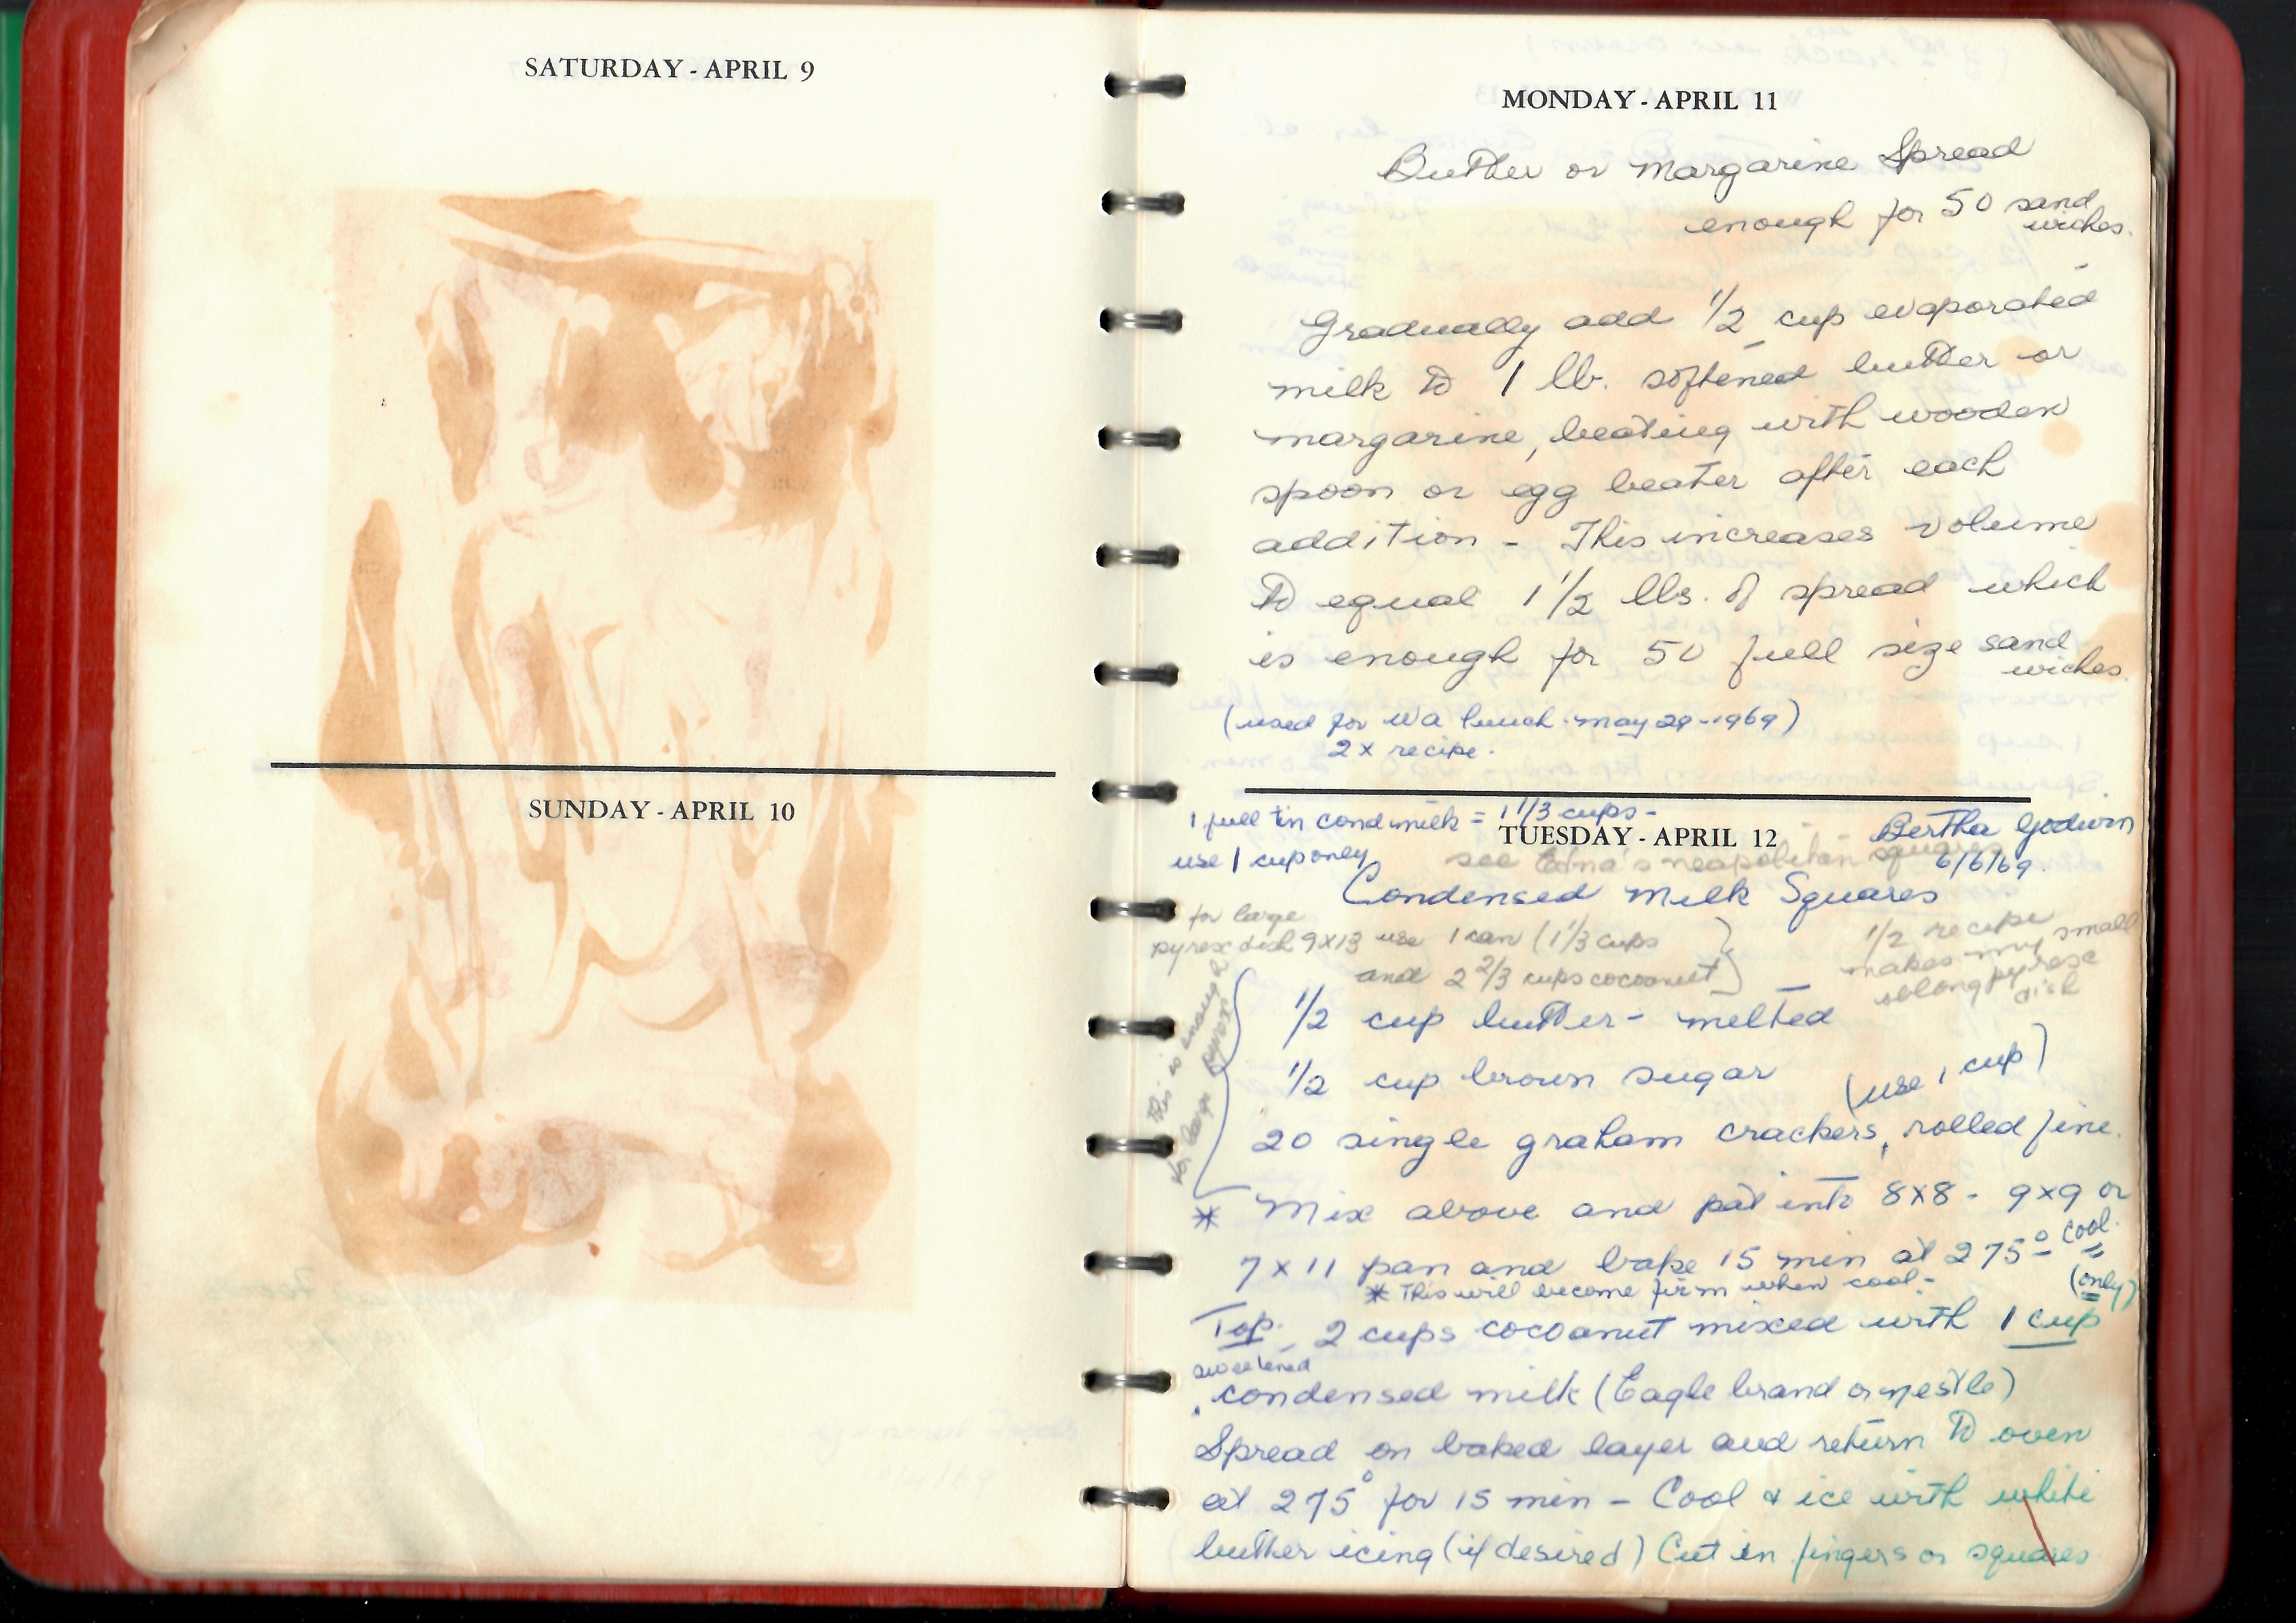 SATURDAY - APRIL 9
SUNDAY - APRIL 10
MONDAY - APRIL 11
Butter or Margarine Spread
enough for 50 sand
wiches.
Gradually add 1/2 cup evaporated
milk to 1 lb. softened butter or
margarine, beating with wooden
spoon or egg beater after each
addition - This increases volume
to equal 1 1/2 lbs. of spread which
is enough for 50 full size sand
wiches.
(used for wa lunch - may 29 - 1969)
2 x recipe.
1 full tin cond milk = 1 1/3 cups -
use 1 cup only
TUESDAY - APRIL 12
Bertha Godwin
6/6/69.
see Edna's neapolitan squares
Condensed Milk Squares
for large
pyrex dish 9x13 use 1 can (1 1/3 cups
and 2 2/3 cups cocoanut)
1/2 recipe
makes my small
oblong pyrex
dish
This is enough
for large pyrex
1/2 cup butter - melted
1/2 cup brown sugar
(use 1 cup)
20 single graham crackers, rolled fine.
* Mix above and pat into 8x8 - 9x9 or
7 x 11 pan and bake 15 min at 275° - cool.
* This will become firm when cool -
(only)
Top - 2 cups cocoanut mixed with 1 cup
sweetened
condensed milk (Eagle brand or nestle)
Spread on baked layer and return to oven
at 275° for 15 min - Cool & ice with white
butter icing (if desired) Cut in fingers or squares